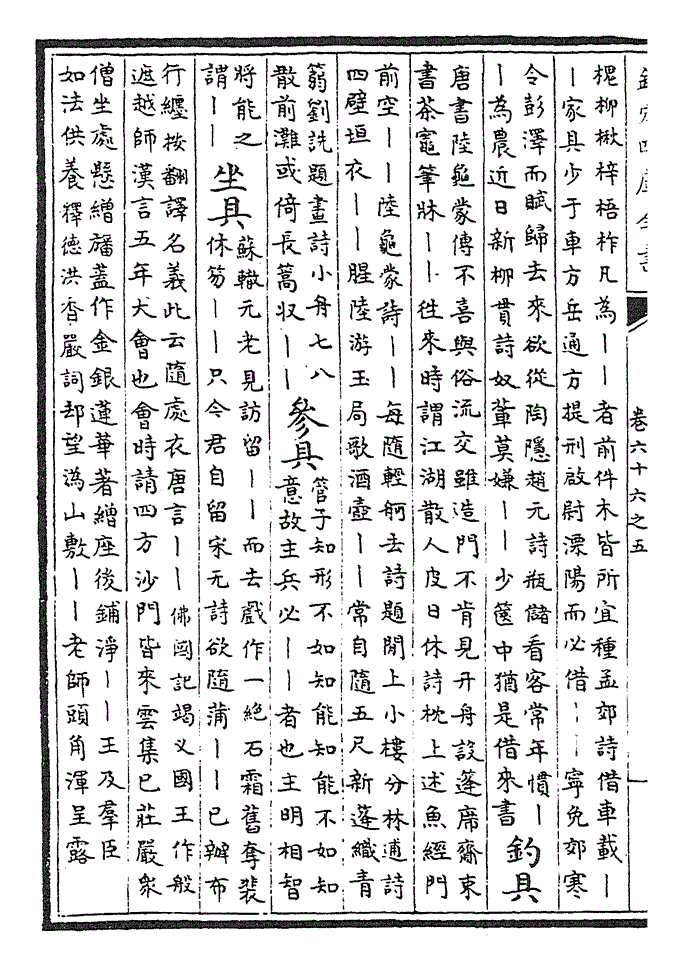 欽定四庫全書
卷六十六之五
一
槐柳楸梓梧柞凡為——者前件木皆所宜種孟郊詩借車載—
—家具少于車方岳通方提刑啟尉溧陽而必借——寧免郊寒
令彭澤而賦歸去來欲從陶隱趙元詩瓶儲看客常年慣—
—為農近日新柳貫詩奴輩莫嫌——少篋中猶是借來書
釣具
唐書陸龜蒙傳不喜與俗流交雖造門不肯見升舟設蓬席齎束
書茶竈筆牀——徃來時謂江湖散人皮日休詩枕上述魚經門
前空——陸龜蒙詩——每隨輕舸去詩題閒上小樓分林逋詩
四壁垣衣——腥陸游玉局歌酒壺——常自隨五尺新蓬織青
篛劉詵題畫詩小舟七八
散前灘或倚長蒿収——
參具
管子知形不如知能知能不如知
意故主兵必——者也主明相智
將能之
謂——
坐具
蘇轍元老見訪留——而去戲作一絶石霜舊奪裴
休笏——只今君自留宋无詩欲隨蒲——已辦布
行纏按翻譯名義此云隨處衣唐言——佛國記竭义國王作般
遮越師漢言五年大會也會時請四方沙門皆來雲集已莊嚴衆
僧坐處懸繒旛蓋作金銀蓮華著繒座後鋪淨——王及羣臣
如法供養釋德洪香嚴詞却望溈山敷——老師頭角渾呈露